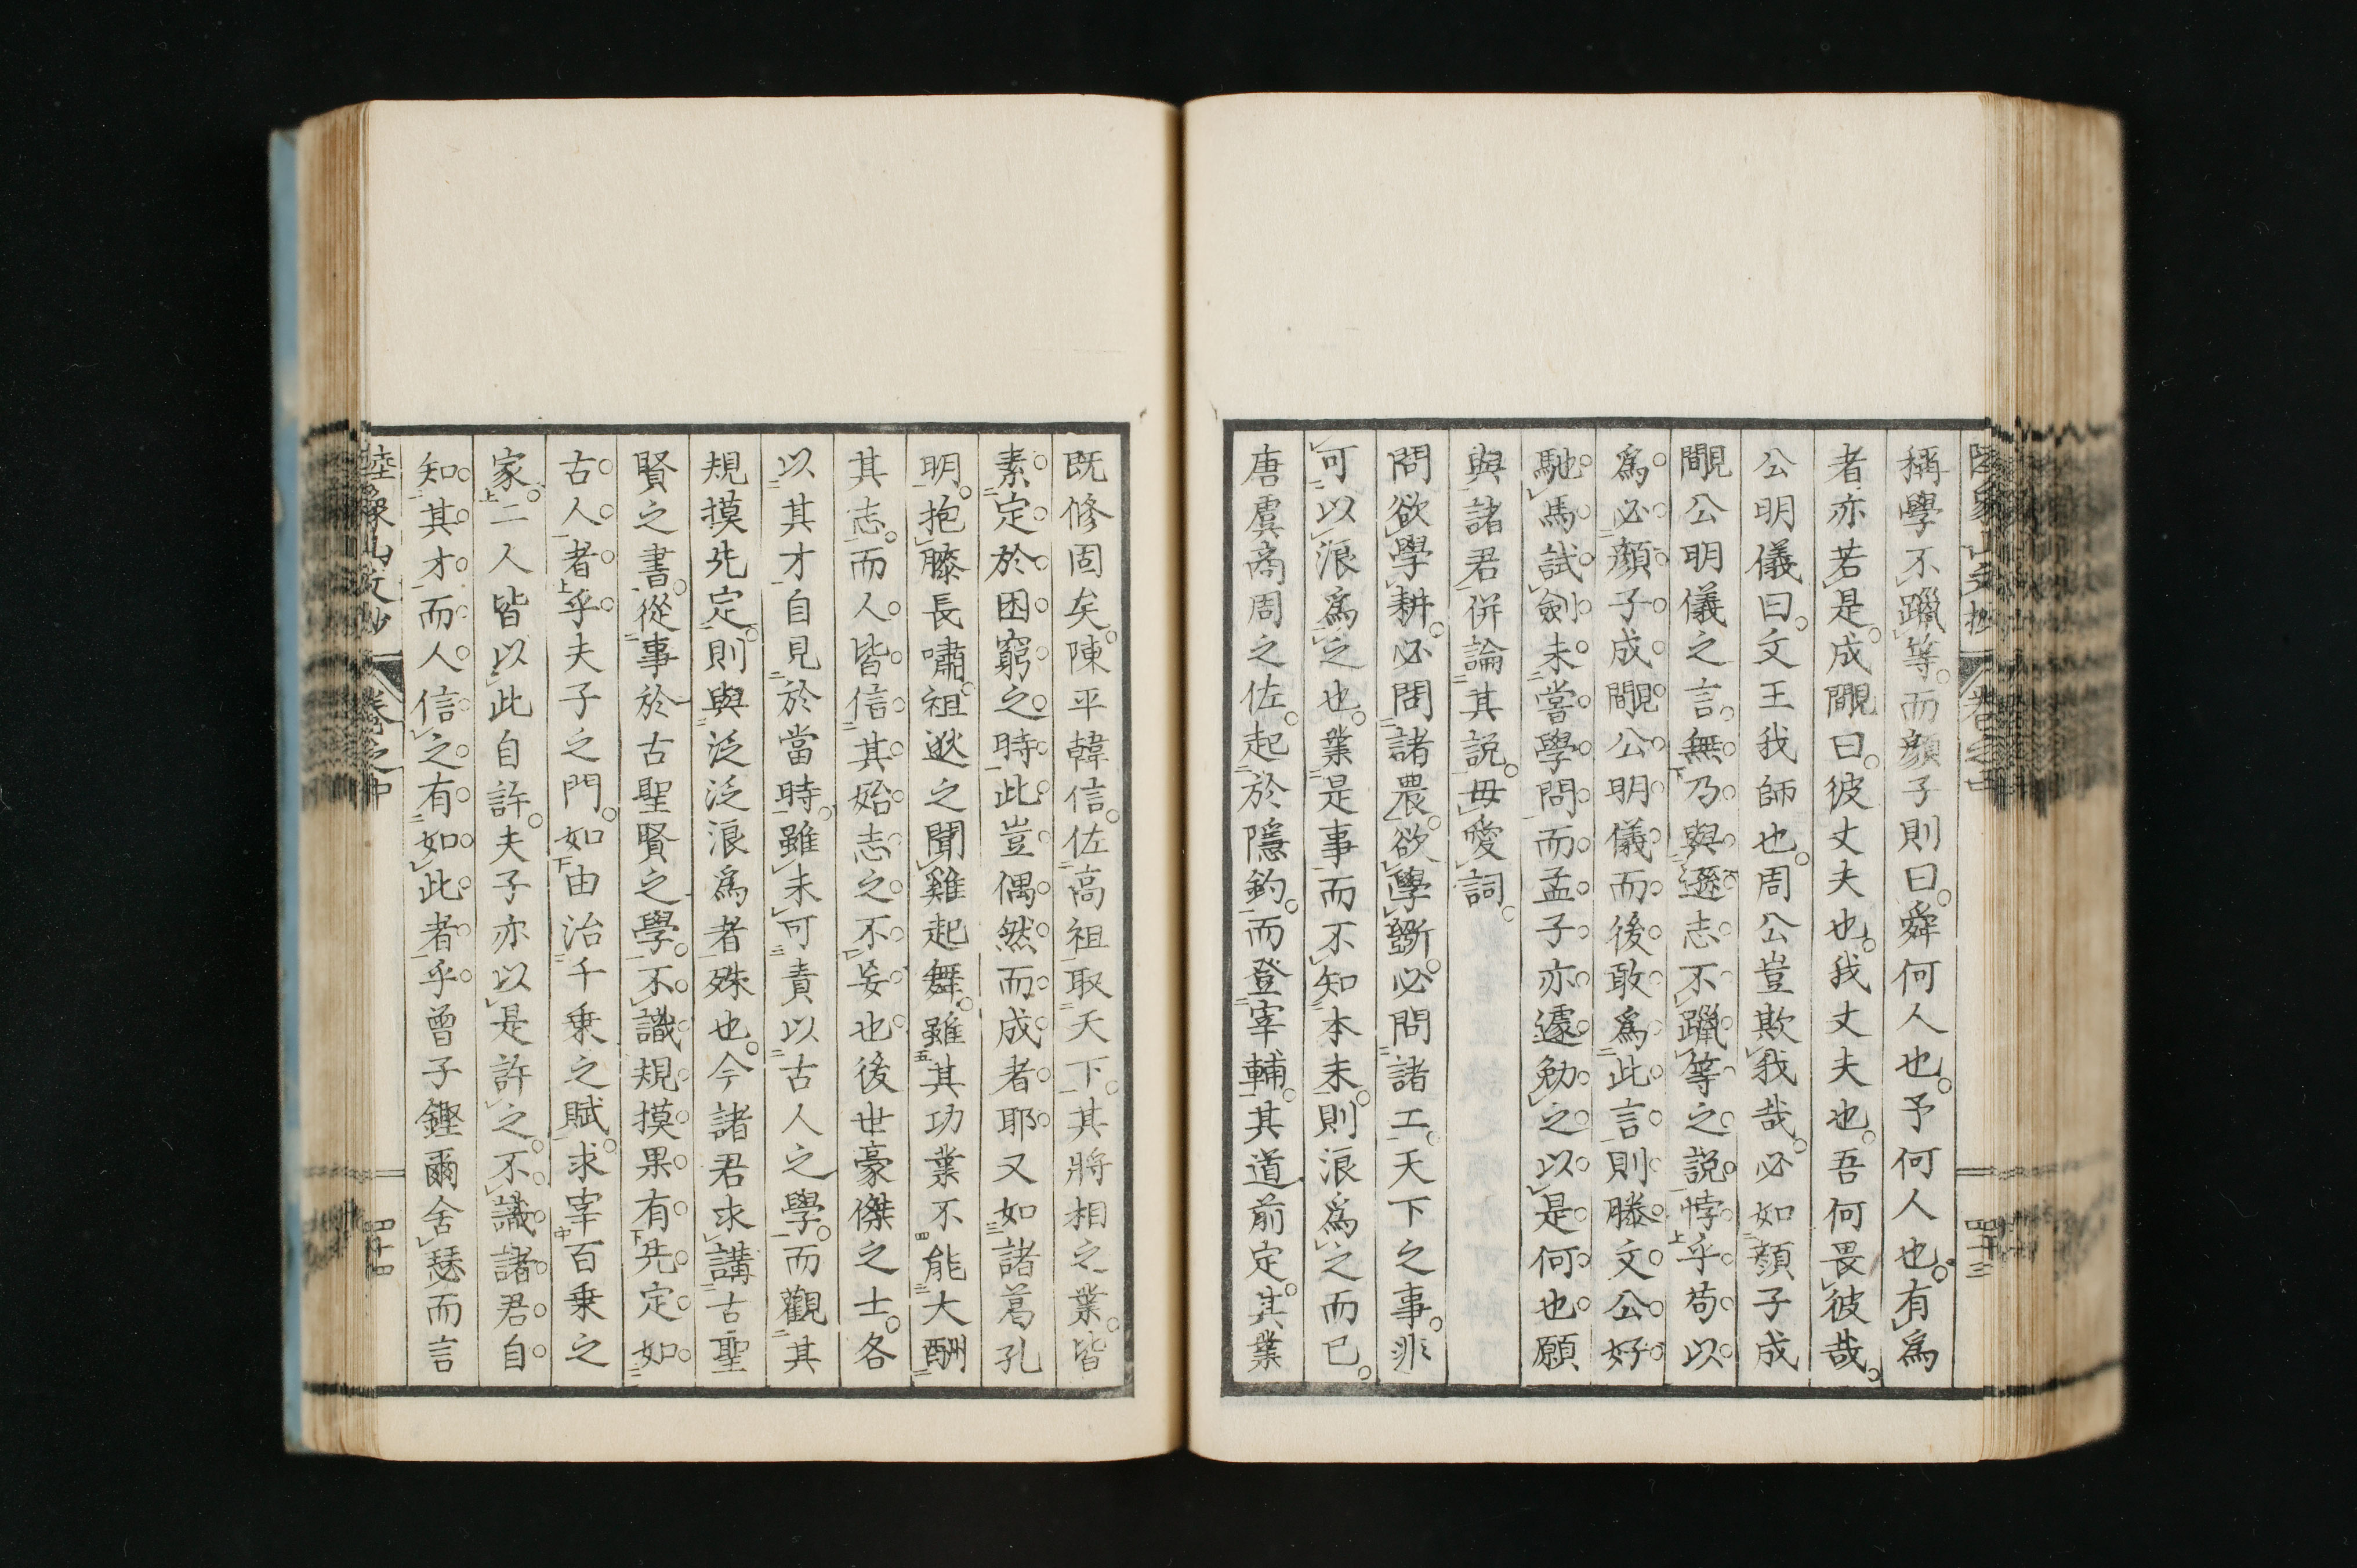 稱學不躐等而顔子則曰舜何人也予何人也有爲
者亦若是成覸曰彼丈夫也我丈夫也吾何畏彼哉
公明儀曰文王我師也周公豈欺我哉必如顔子成
覸公明儀之言無乃與遜志不躐等之説悖乎苟以
爲必顔子成覸公明儀而後敢爲此言則滕文公好
馳馬試劍未嘗學問而孟子亦遽勉之以是何也願
與諸君併論其説毋愛詞
問欲學耕必問諸農欲學斲必問諸工天下之事非
可以浪爲之也業是事而不知本末則浪爲之而已
唐虞商周之佐起於隱釣而登宰輔其道前定其業
既修固矣陳平韓信佐高祖取天下其將相之業皆
素定於困窮之時此豈偶然而成者耶又如諸葛孔
明抱膝長嘯祖逖之聞雞起舞雖其功業不能大酬
其志而人皆信其始志之不妄也後世豪傑之士各
以其才自見於當時雖未可責以古人之學而觀其
規摸先定則與泛泛浪爲者殊也今諸君求講古聖
賢之書從事於古聖賢之學不識規摸果有先定如
古人者乎夫子之門如由治千乗之賦求宰百乗之
家二人皆以此自許夫子亦以是許之不識諸君自
知其才而人信之有如此者乎曾子鏗爾舍瑟而言
陸象山文抄 卷之中 四十四